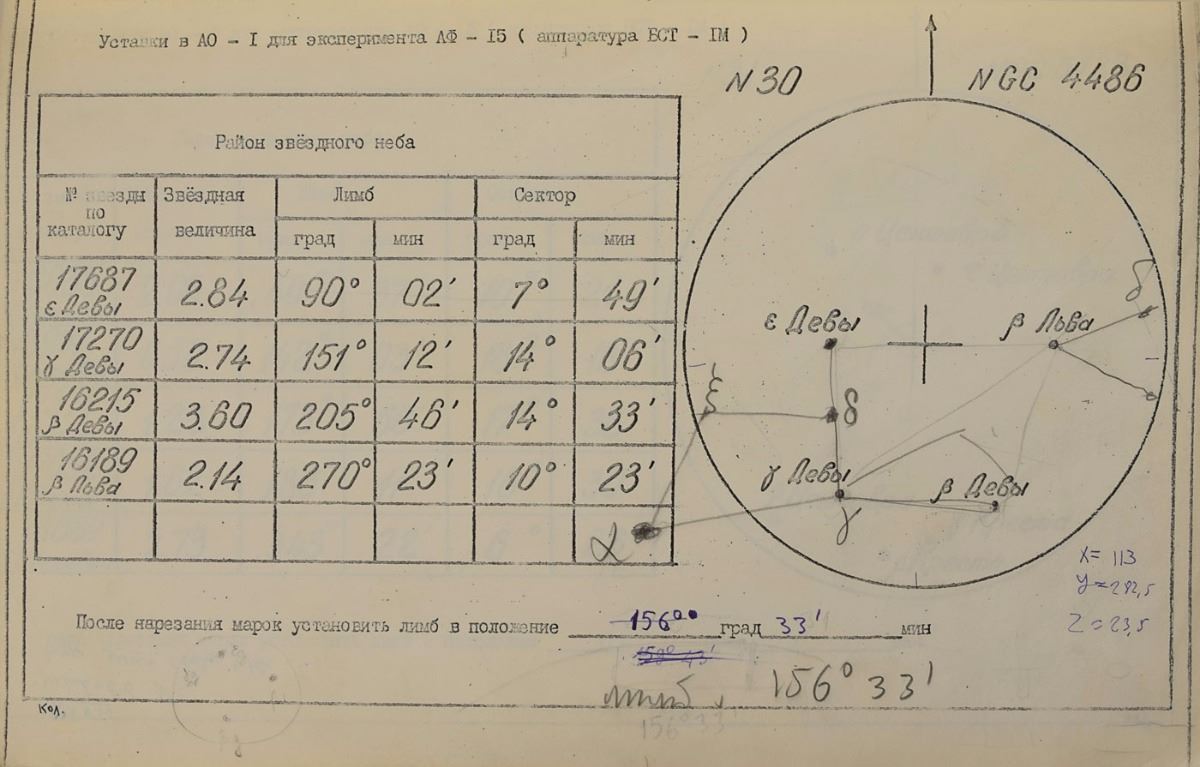 Уставки в АО - I для эксперимента АФ - I5 ( аппаратура БСТ - IМ )
N 30
NGC 4486
Район звёздного неба
№ звезды по каталогу
Звёздная величина
Лимб
Сектор
град
мин
град
мин
17687 ε Девы 2.84 90° 02' 7° 49'
17270 γ Девы 2.74 151° 12' 14° 06'
16215 β Девы 3.60 205° 46' 14° 33'
16189 β Льва 2.14 270° 23' 10° 23'
α
ε Девы
β Льва
δ
ξ
δ
γ Девы
β Девы
γ
X= 113
Y=292,5
Z=23,5
После нарезания марок установить лимб в положение 156° град 33' мин
лимб 156° 33'
156°33'
Кол.